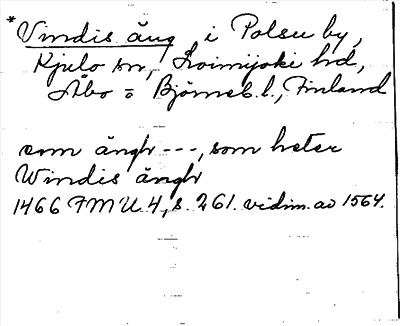 * Vindis äng i Polsu by,
Kjulo sn, Loimijoki hd,
Åbo o Björneb. l., Finland
som ängh ---, som heter
Windis ängh
1466 FMU 4, s. 261. vidim. av 1564.